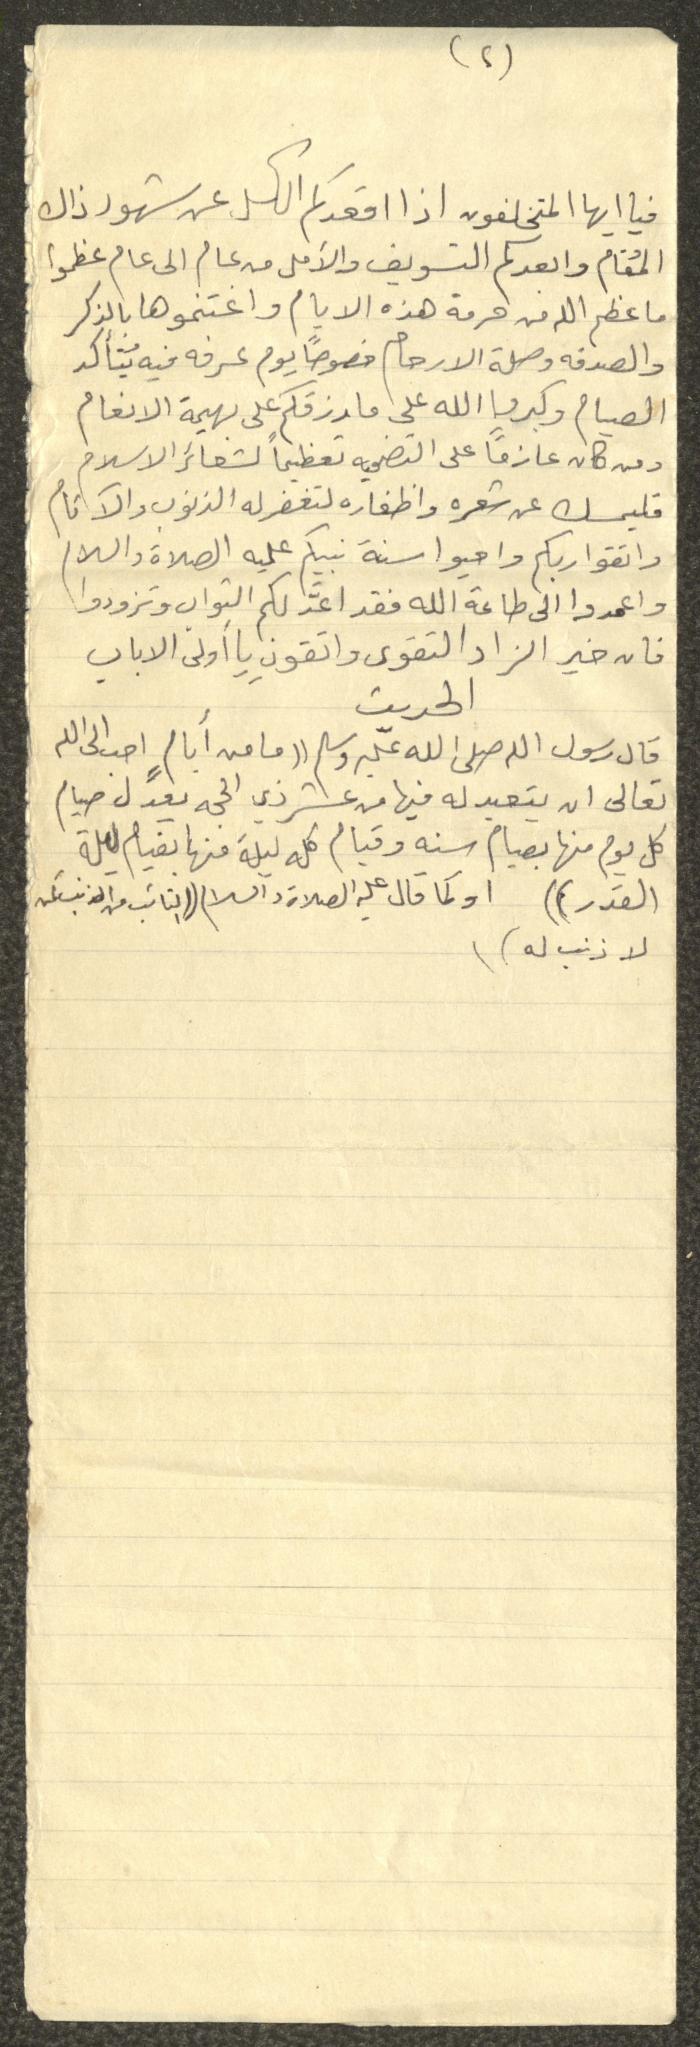 (٢)
فيا ايها المتخلفون اذا اقعدكم الكسل عن شهود ذاك
المقام وابعدكم التسويف والأمل من عام الى عام عظموا
ما عظم الله من حرمة هذه الايام واغتنموها بالذكر
والصدقه وصلة الارحام خصوصاً يوم عرفه فيه يتأكد
الصيام وكبروا الله على ما رزقكم على بهيمة الانعام
ومن كان عازماً على التضحيه تعظيماً لشعائر الاسلام
فليمسك عن شعره واظفاره لتغفر له الذنوب والآثام
واتقوا ربكم واحيوا سنة نبيكم عليه الصلاة والسلام
واعمدوا الى طاعة الله فقد اعدّ لكم الثواب وتزودوا
فان خير الزاد التقوى واتقون يا أولى الالباب
الحديث
قال رسول الله صلى الله عليه وسلم ((ما من أيام احب الى الله
تعالى ان يتعبد له فيها من عشر ذي الحجه يعدل صيام
كل يوم منها بصيام سنه وقيام كل ليلة منها بقيام ليلة
القدر)) او كما قال عليه الصلاة والسلام ((التائب من الذنب كمن
لا ذنب له))